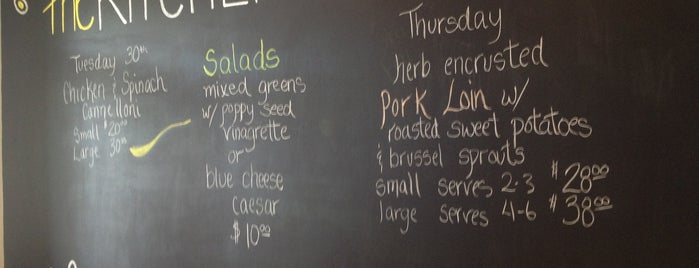 the KITCHEN
Tuesday 30th
Chicken & Spinach
Cannelloni
Small $20.00
Large 30.00
Salads
mixed greens
w/ poppy seed
vinagrette
or
blue cheese
caesar
$10.00
Thursday
herb encrusted
Pork Loin w/
roasted sweet potatoes
& brussel sprouts
small serves 2-3 $28.00
large serves 4-6 $38.00